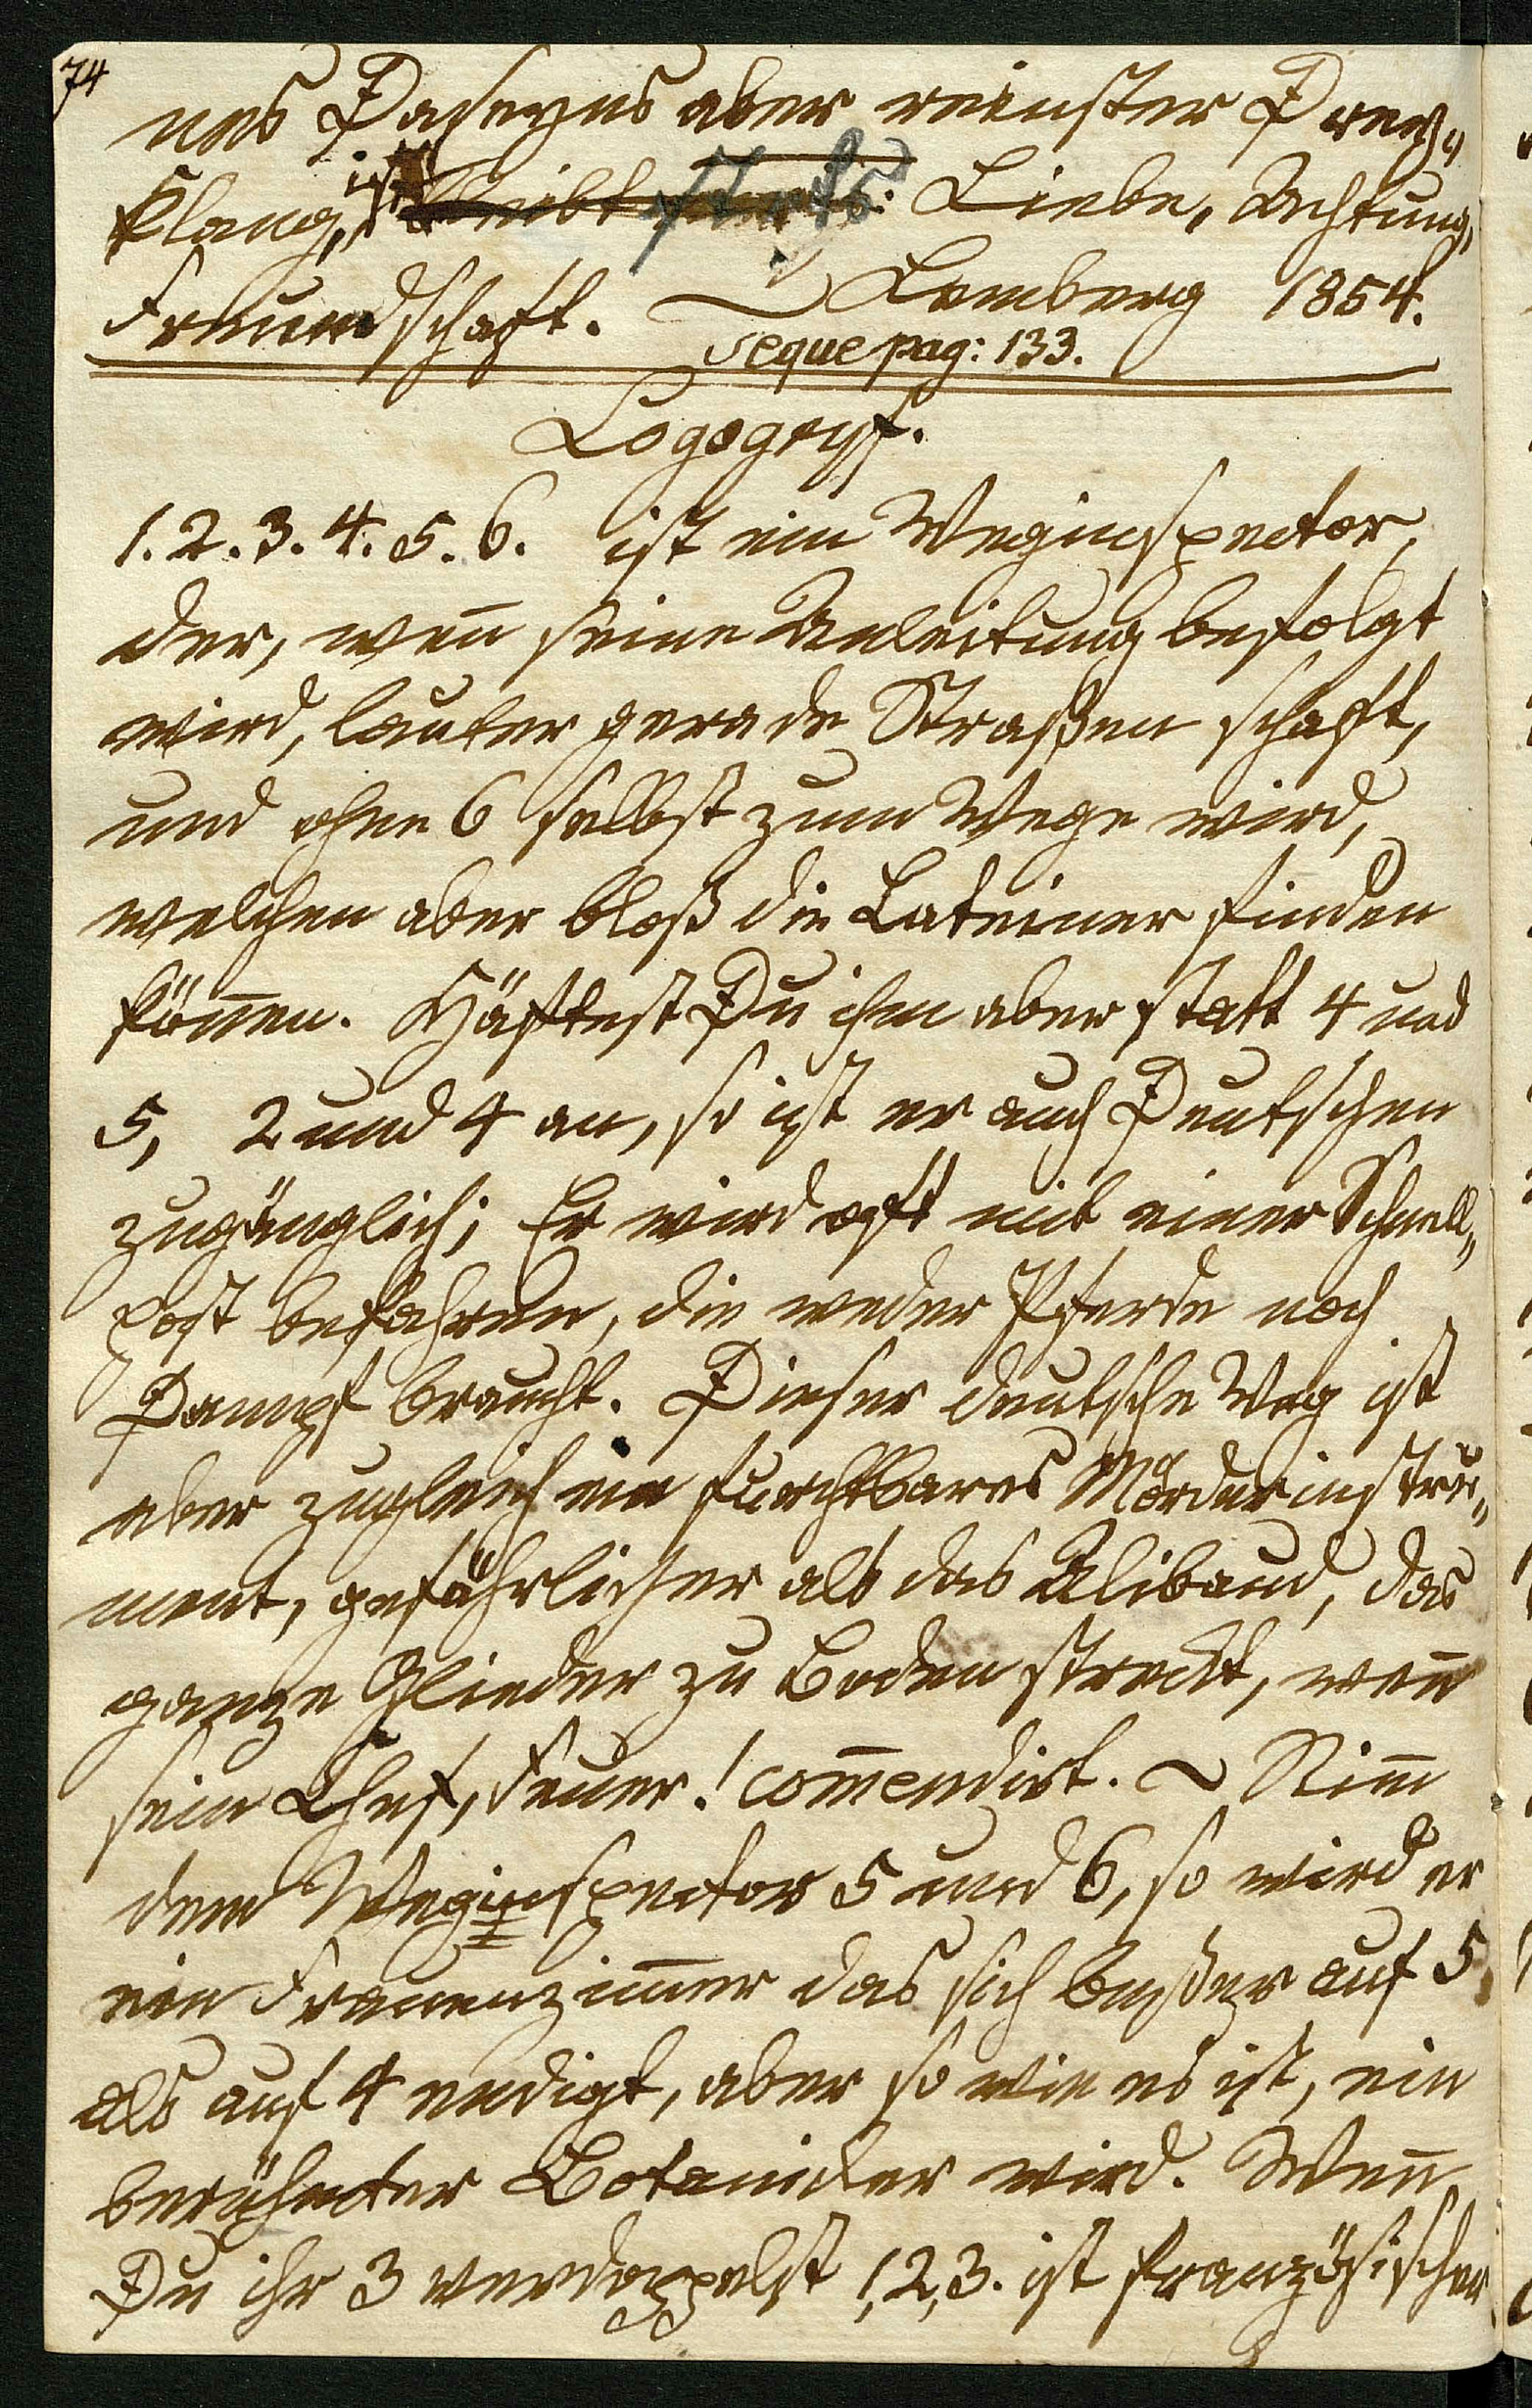 74
nes Daseyns aber reinster Drey„
klang, ist bleibt stets: Liebe, Achtung,
Freundschaft. Lemberg 1854.
seque pag: 133.
Logogryf.
1. 2. 3. 4. 5. 6. ist ein Weginspector,
der, weñ seine Anleitung befolgt
wird, lauter gerade Straßen schaft,
und ohne 6 selbst zum Wege wird,
welchen aber bloß die Lateiner finden
köñen. Häftest Du ihm aber statt 4 und
5, 2 und 4 an, so ist er auch Deutschen
zugänglich; Er wird oft mit einer Schnell„
post befahren, die weder Pferde noch
Dampf braucht. Dieser deutsche Weg ist
aber zugleich ein furchtbares Mörderinstru„
ment, gefährlicher als das Alibaud, das
ganze Glieder zu Boden streckt, weñ
sein Chef, Feuer! com̄endirt. ~ Nim̄
dem Weginspector 5 und 6, so wird er
ein Frauenzim̄er das sich beßer auf 5
als auf 4 endigt, aber so wie es ist, ein
berühmter Botaniker wird. Weñ
Du ihr 3 verdoppelst 1, 2, 3. ist französischer